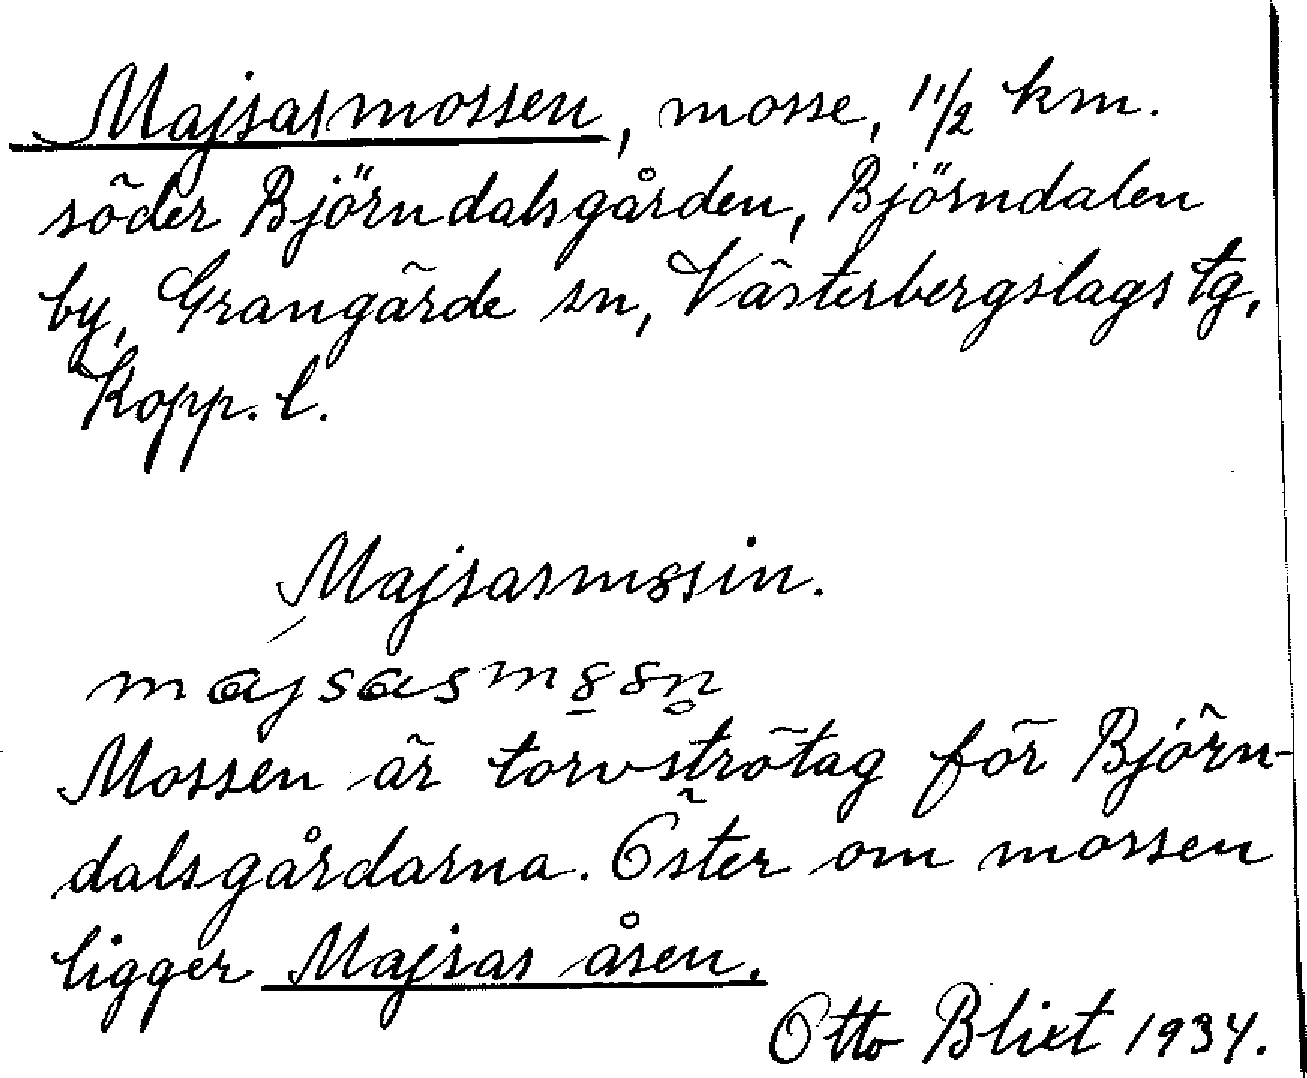 Majsasmossen, mosse, 1 1/2 km.
söder Björndalsgården, Björndalen
by, Grangärde sn, Västerbergslags tg,
Kopp. l.
Majsasm8sin.
majsasm8sn̥
Mossen är torvströtag för Björn-
dalsgårdarna. Öster om mossen
ligger Majsas åsen.
Otto Blixt 1934.